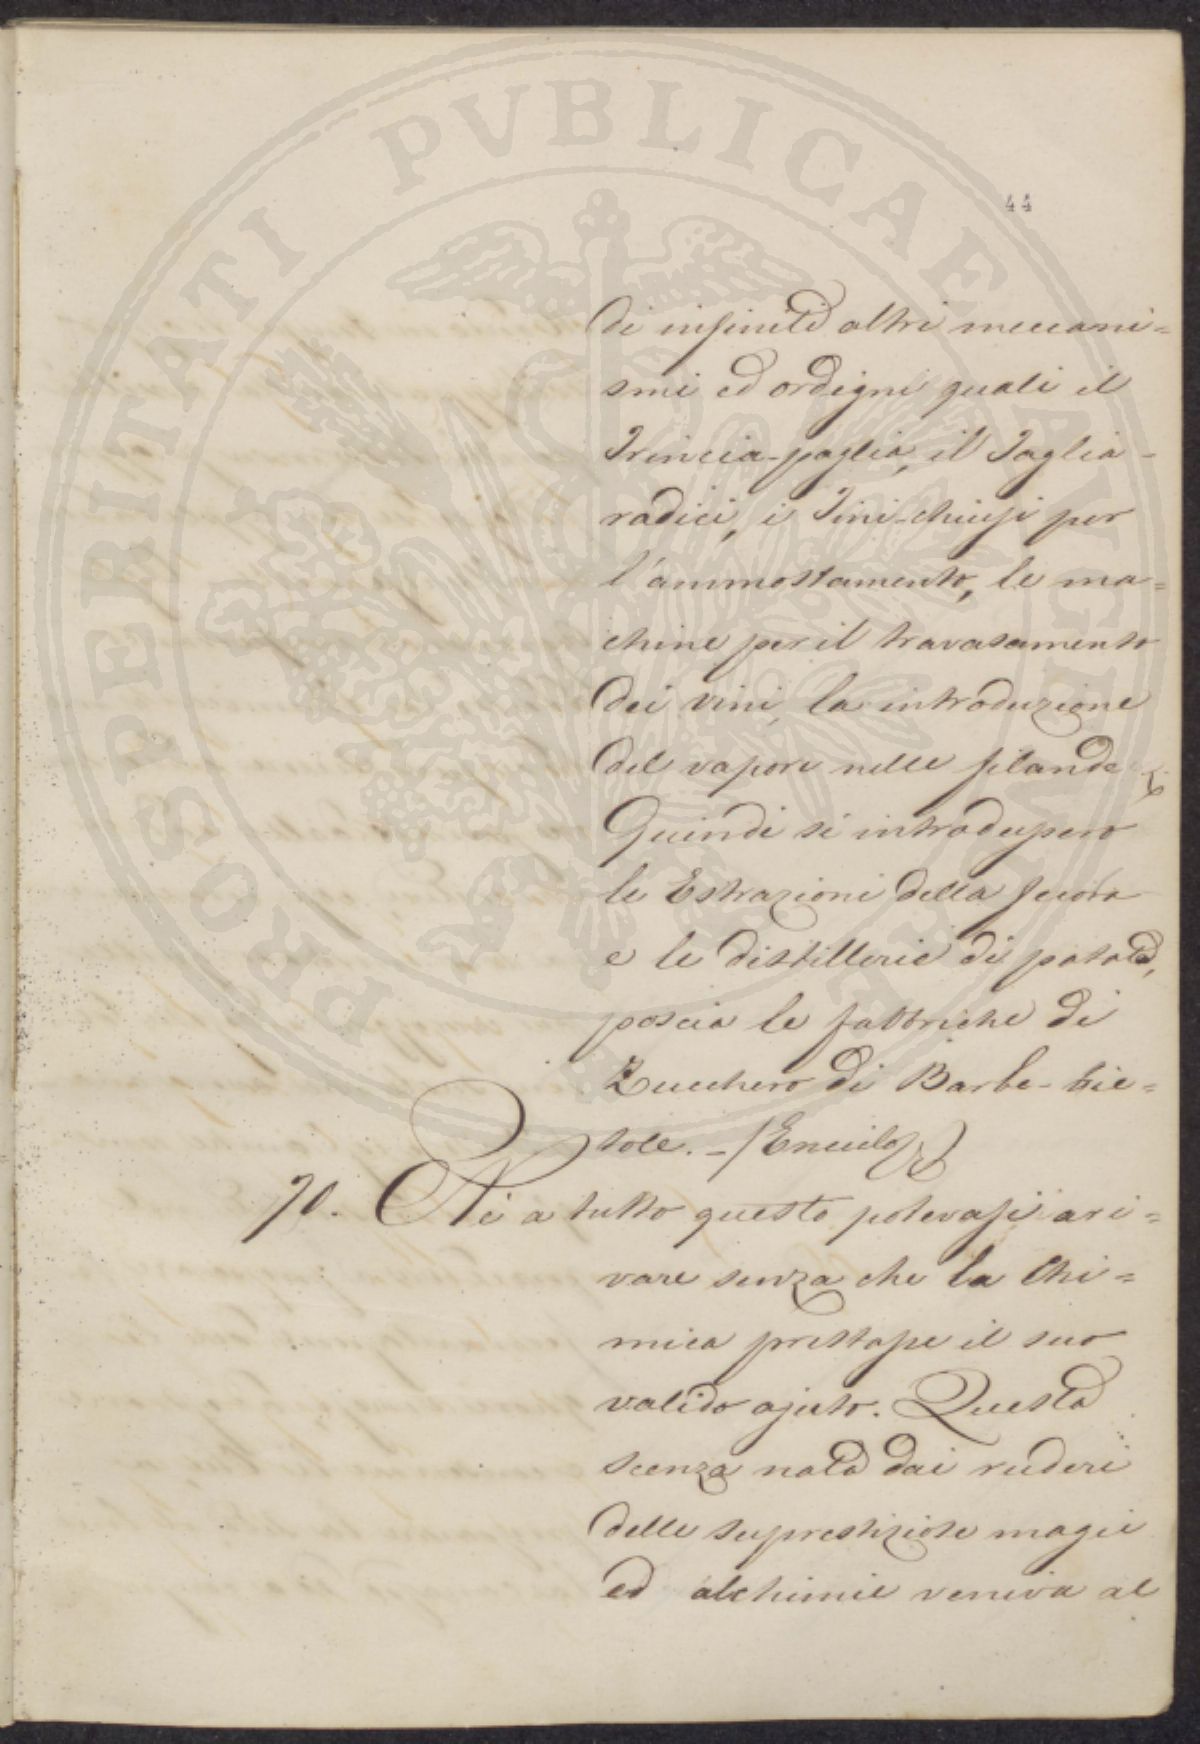 PROSPERITATI PVBLICAE AVGENDAE
44
di infiniti altri meccani=
smi ed ordigni quali il
Trincia-paglia, il Taglia-
radici, i Tini-chiusi per
l'ammostamento, le ma=
chine per il travasamento
dei vini, la introduzione
del vapore nelle filande
Quindi si introdussero
le Estrazioni della fecola
e le distillerie di patate,
poscia le fabbriche di
Zucchero di Barbe-bie=
tole. - (Enciclop)
70. Nè a tutto questo potevasi ari=
vare senza che la Chi=
mica prestasse il suo
valido ajuto. Questa
scenza nata dai ruderi
delle suprestiziose magie
ed alchimie veniva al